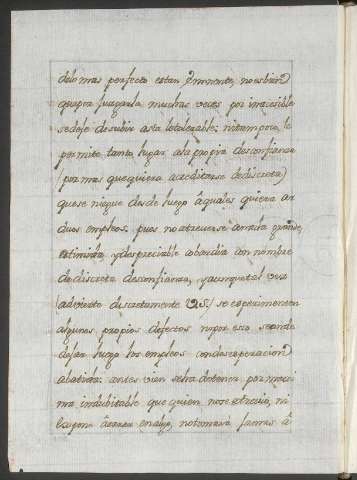 delo mas perfecto estan eminente, no es bien
que por juzgarla muchas veces por inacesible
se deje de subir asta lo tolerable; ni tampoco, le
permite tanto lugar ala propia desconfianza
(por mas que quiera acreditarse de discreta)
que se niegue desde luego à quales quiera ar
duos empleos, pues no atreverse arriba grande,
estimida, y despreciable cobardia con nombre
de discreta desconfianza, y aunque tal vez
(advierte discretamente V.S.) se experimenten
algunos propios defectos no por eso se an de
dejar luego los empleos con desesperacion
abatida: antes vien se ha de tener por maxi
ma indubitable que quien no se atrevio, ni
 en algo, no tomará jamas à